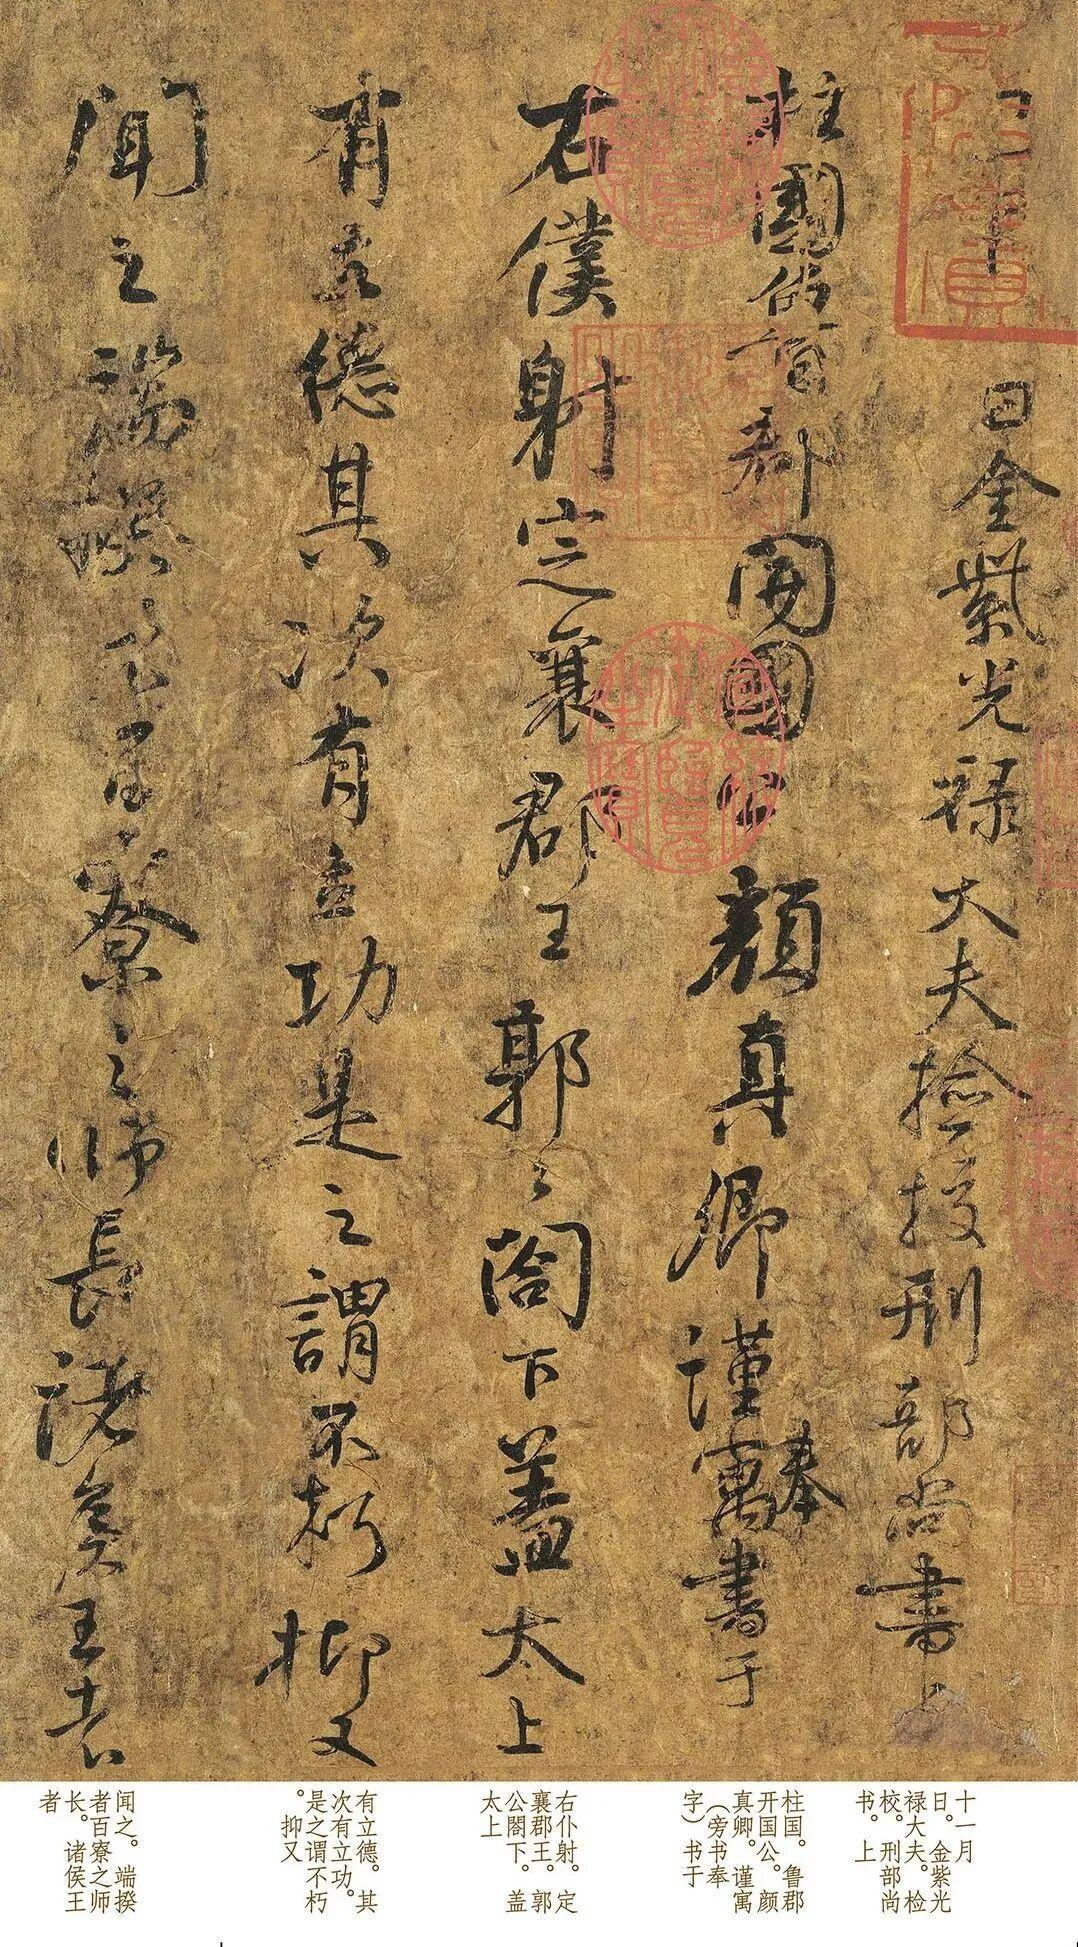 日金紫光禄大夫檢校刑部尚書上
柱國魯郡開國公顏真卿謹寓奉書于
右僕射定襄郡王郭公閤下蓋太上
有立德其次有立功是之謂不朽抑又
聞之端揆者百寮之師長諸侯王者
十一月
日。金紫光
禄大夫。检
校。刑部尚
书。上
柱国。鲁郡
开国公。颜
真卿。谨寓
（旁书奉
字）书于
右仆射。定
襄郡王。郭
公閤下。盖
太上
有立德。其
次有立功。
是之谓不朽
。抑又
闻之。端揆
者百寮之师
长。诸侯王
者